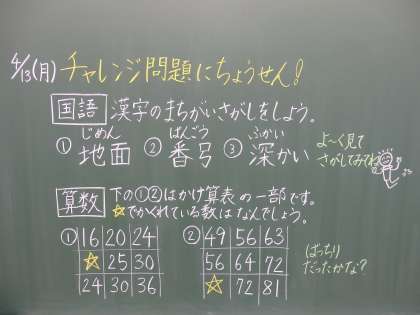 4/13(月) チャレンジ問題にちょうせん!
国語 漢字のまちがいさがしをしよう。
じめん ばんごう ふかい
① 地面 ② 番号 ③ 深かい
よ~く見て
さがしてみてね
算数 下の①②はかけ算表の一部です。
☆でかくれている数はなんでしょう。
① 16 20 24
☆ 25 30
24 30 36
② 49 56 63
56 64 72
☆ 72 81
ばっちり
だったかな?